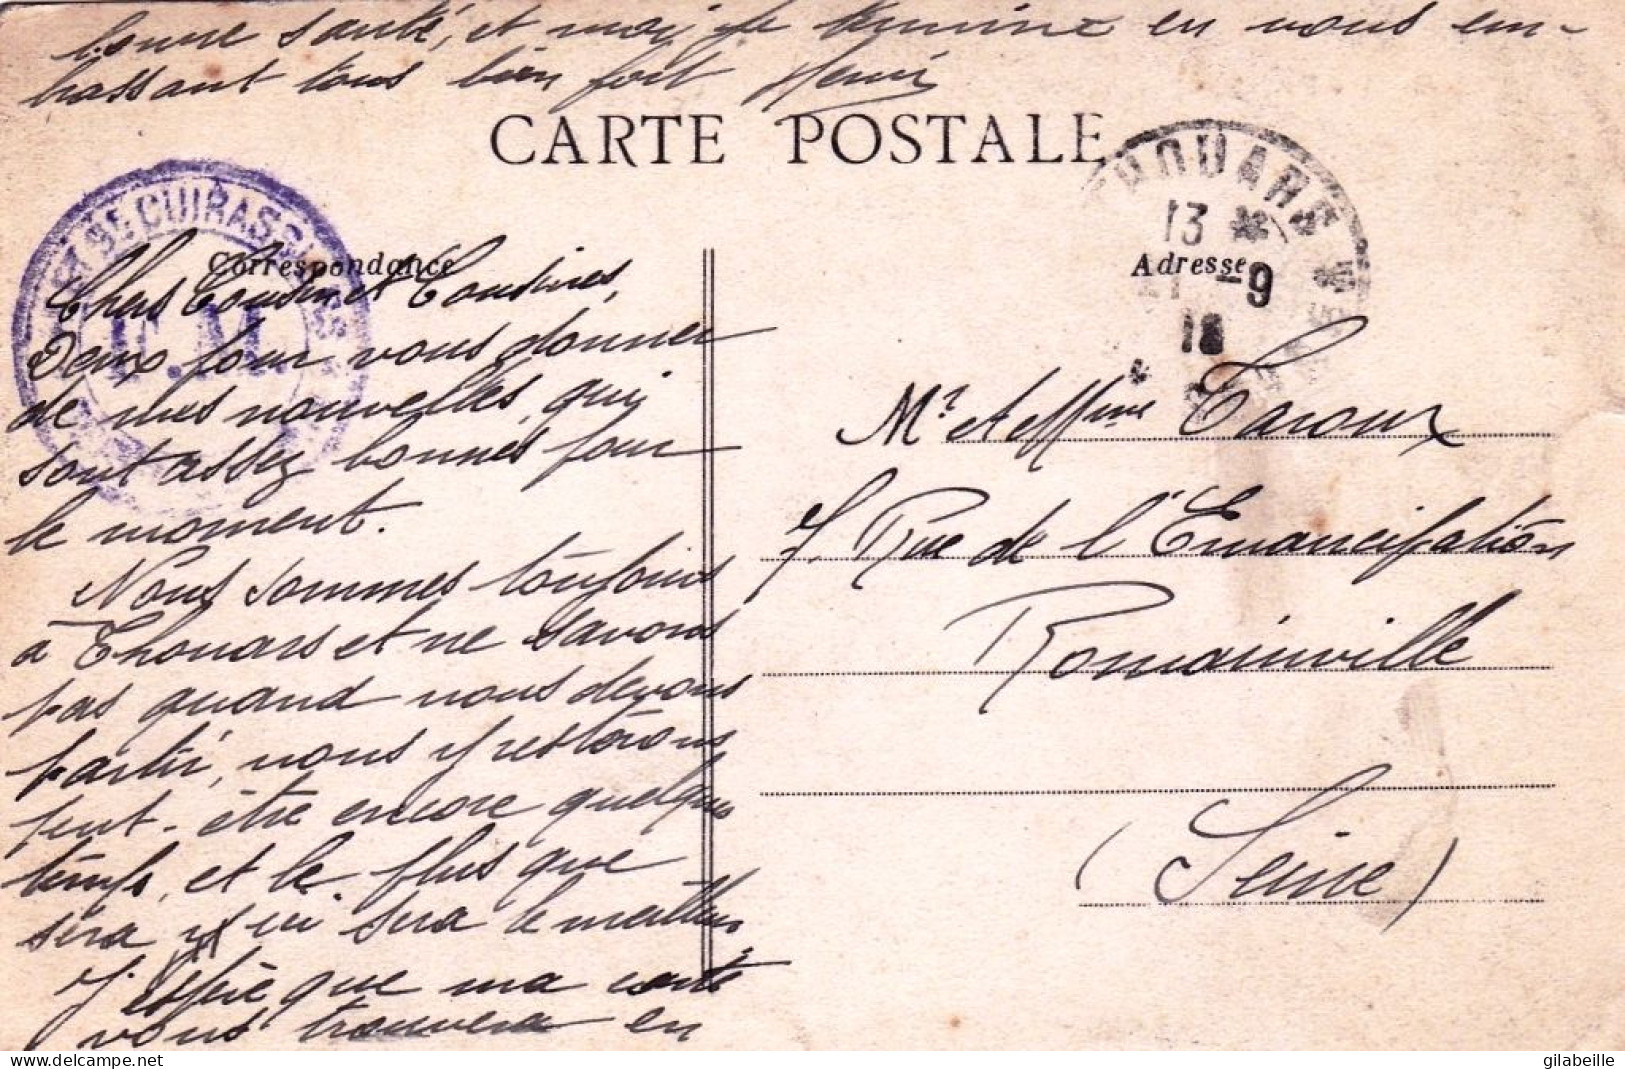 bonne santé, et moi je termine en vous em-
brassant tous bien fort Henri
CARTE POSTALE
9E CUIRASSIERS
F.M.
THOUARS
13
-9
18
Correspondance
Adresse
Chers Cousin et Cousines,
Deux pour vous donner
de mes nouvelles, qui
sont assez bonnes pour
le moment.
Nous sommes toujours
à Thouars et ne savons
pas quand nous devons
partir, nous y resterons
peut-être encore quelques
temps, et le plus que
sera ici sera le meilleur
J'espère que ma carte
vous trouvera en
Mr et Mme Caroux
7, Rue de l'Emancipation
Romainville
(Seine)
gilabeille